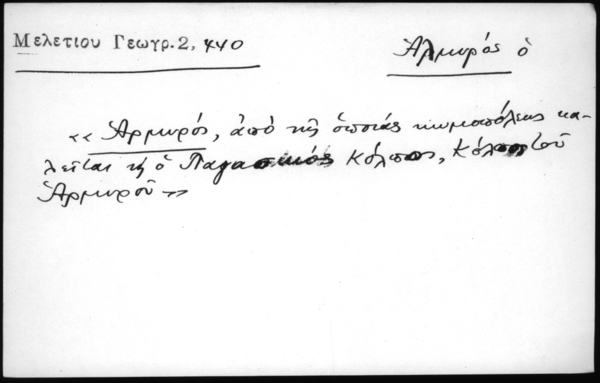 Μελετίου Γεωγρ. 2, 440
Ἁλμυρός ὁ
«Ἁρμυρός, ἀπὸ τῆς ὁποίας κωμοπόλεως κα-
λεῖται κὴ ὁ Παγασικός κόλπος, κόλπος τοῦ
Ἁρμυροῦ»